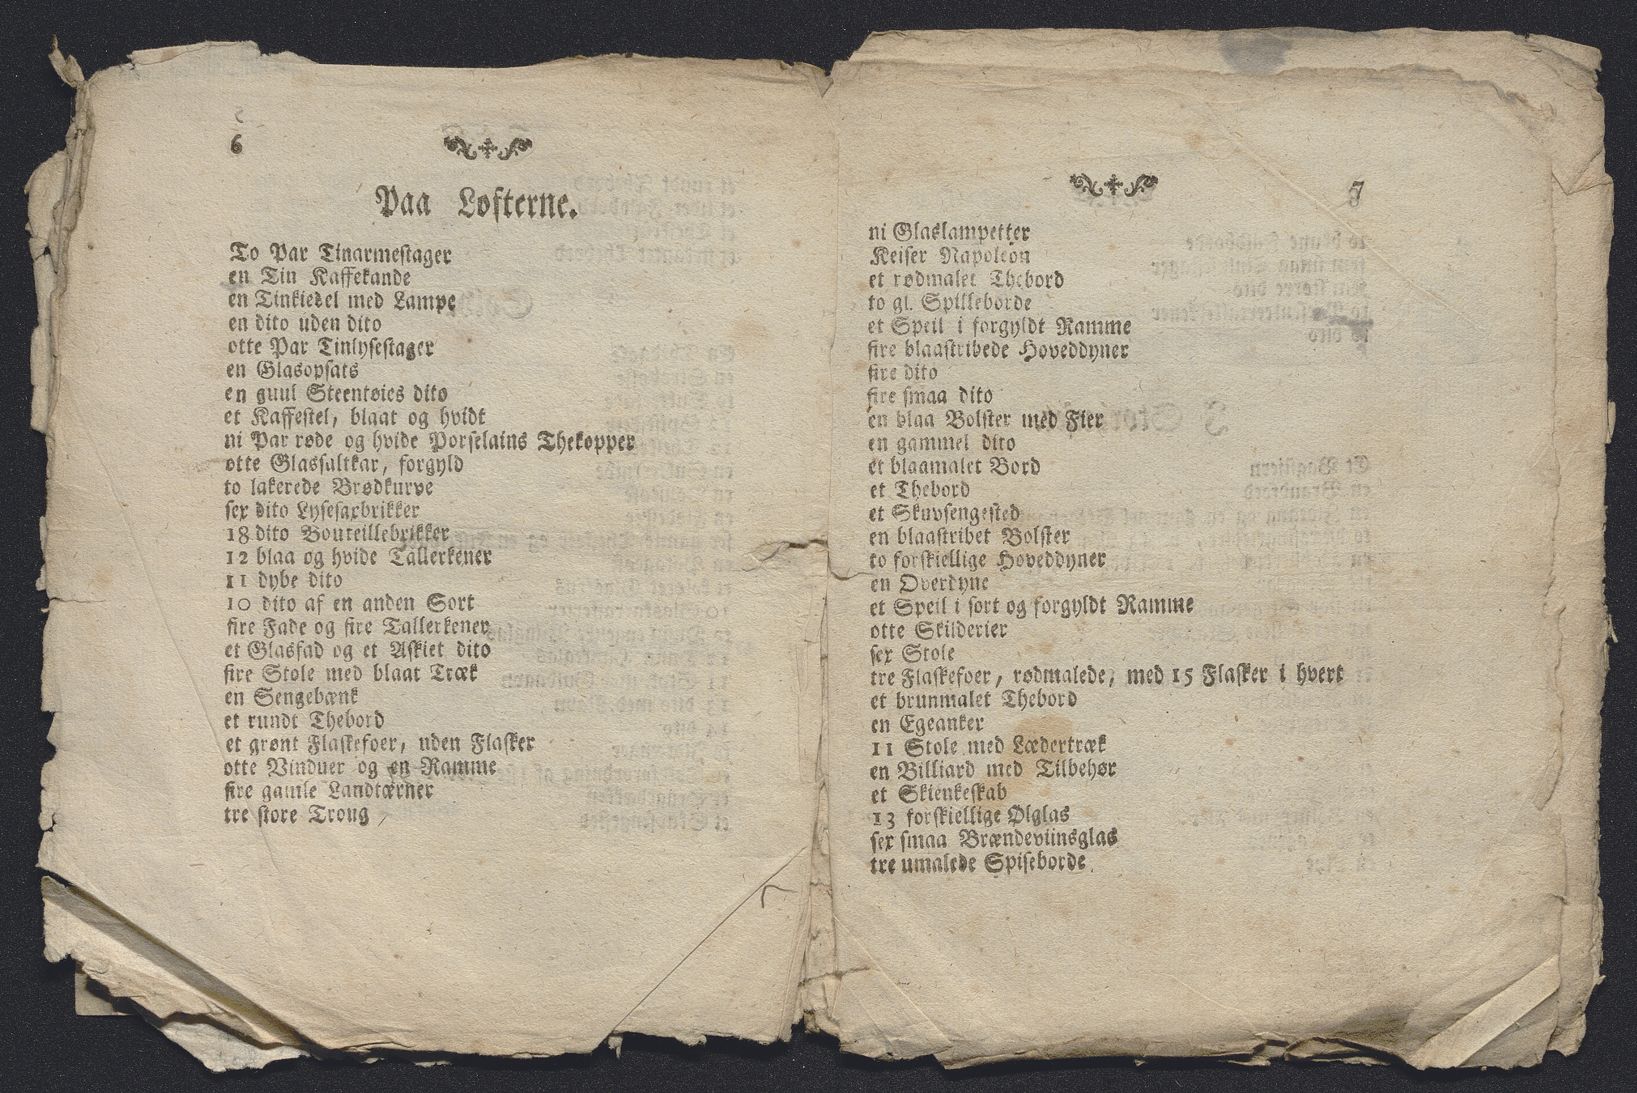 6
Paa Løfterne.
To Par Tinarmestager
en Tin Kaffekande
en Tinkiedel med Lampe
en dito uden dito
otte Par Tinlysestager
en Glasopsats
en guul Steentøies dito
et Kaffestel, blaat og hvidt
ni Par røde og hvide Porselains Thekopper
otte Glassaltkar, forgyld
to lakerede Brødkurve
sex dito Lysesaxbrikker
18 dito Bouteillebrikker
12 blaa og hvide Tallerkener
11 dybe dito
10 dito af en anden Sort
fire Fade og fire Tallerkener
et Glasfad og et Askiet dito
fire Stole med blaat Træk
en Sengebænk
et rundt Thebord
et grønt Flaskefoer, uden Flasker
otte Vinduer og en Ramme
fire gamle Landtærner
tre store Troug
7
ni Glaslampetter
Keiser Napoleon
et rødmalet Thebord
to gl. Spilleborde
et Speil i forgyldt Ramme
fire blaastribede Hoveddyner
fire dito
fire smaa dito
en blaa Bolster med Fier
en gammel dito
et blaamalet Bord
et Thebord
et Skuvsengested
en blaastribet Bolster
to forskiellige Hoveddyner
en Overdyne
et Speil i sort og forgyldt Ramme
otte Skilderier
sex Stole
tre Flaskefoer, rødmalede, med 15 Flasker i hvert
et brunmalet Thebord
en Egeanker
11 Stole med Lædertræk
en Billiard med Tilbehør
et Skienkeskab
13 forskiellige Ølglas
sex smaa Brændeviinsglas
tre umalede Spiseborde